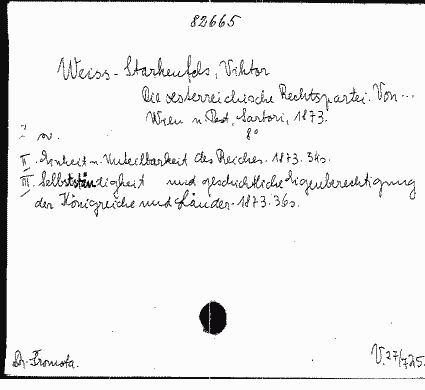 82665
Weiss-Starkenfels, Viktor
Die oesterreichische Rechtspartei. Von...
Wien u. Pest, Sartori, 1873.
8°
I
II. Einheit u. Unteilbarkeit des Reiches. 1873. 34s.
III. Selbstständigkeit und geschichtliche Eigenberechtigung
der Königreiche und Länder. 1873. 36s.
Dr. Fromota.
V. 27/725.